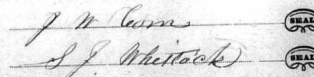 J W Corn SEAL
S J Whitlock SEAL